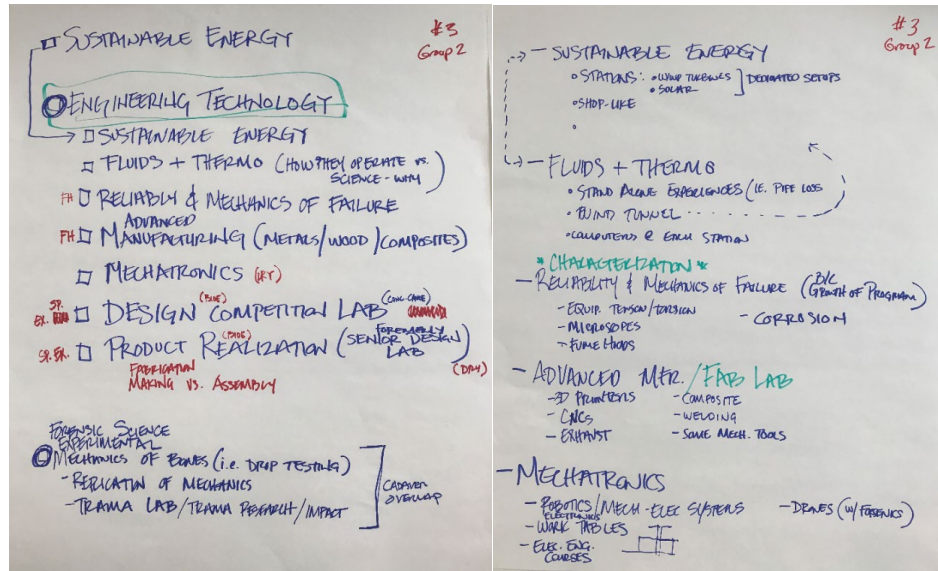 #3
Group 2
□ SUSTAINABLE ENERGY
ENGINEERING TECHNOLOGY
□ SUSTAINABLE ENERGY
□ FLUIDS + THERMO (HOW THEY OPERATE VS.
SCIENCE - WHY)
FH □ RELIABLY & MECHANICS OF FAILURE
ADVANCED
FH □ MANUFACTURING (METALS/WOOD/COMPOSITES)
□ MECHATRONICS (DRY)
SP.
EX. □ DESIGN COMPETITION LAB
SP. EX. □ PRODUCT REALIZATION (SENIOR DESIGN
LAB)
(DRY)
FABRICATION
MAKING VS. ASSEMBLY
FORENSIC SCIENCE
EXPERIMENTAL
MECHANICS OF BONES (i.e. DROP TESTING)
- REPLICATION OF MECHANICS
- TRAMA LAB/TRAMA RESEARCH/IMPACT
CADAVER
OVERLAP
#3
Group 2
- SUSTAINABLE ENERGY
• STATIONS: • WIND TURBINES
• SOLAR
DEDICATED SETUPS
• SHOP-LIKE
•
- FLUIDS + THERMO
• STAND ALONE EXPERIENCES (I.E. PIPE LOSS
• WIND TUNNEL
• COMPUTERS @ EACH STATION
* CHARACTERIZATION *
- RELIABILITY & MECHANICS OF FAILURE (B/C
GROWTH OF PROGRAM)
- EQUIP. TENSON/TORSION
- MICROSCOPES
- FUME HOODS
- CORROSION
- ADVANCED MFR. / FAB LAB
- 3D PRINTERS
- CNCs
- EXHAUST
- COMPOSITE
- WELDING
- SOME MECH. TOOLS
- MECHATRONICS
- ROBOTICS/MECH-ELEC SYSTEMS
ELECTRONICS
- WORK TABLES
- ELEC. ENG.
COURSES
- DRONES (W/ FORENSICS)